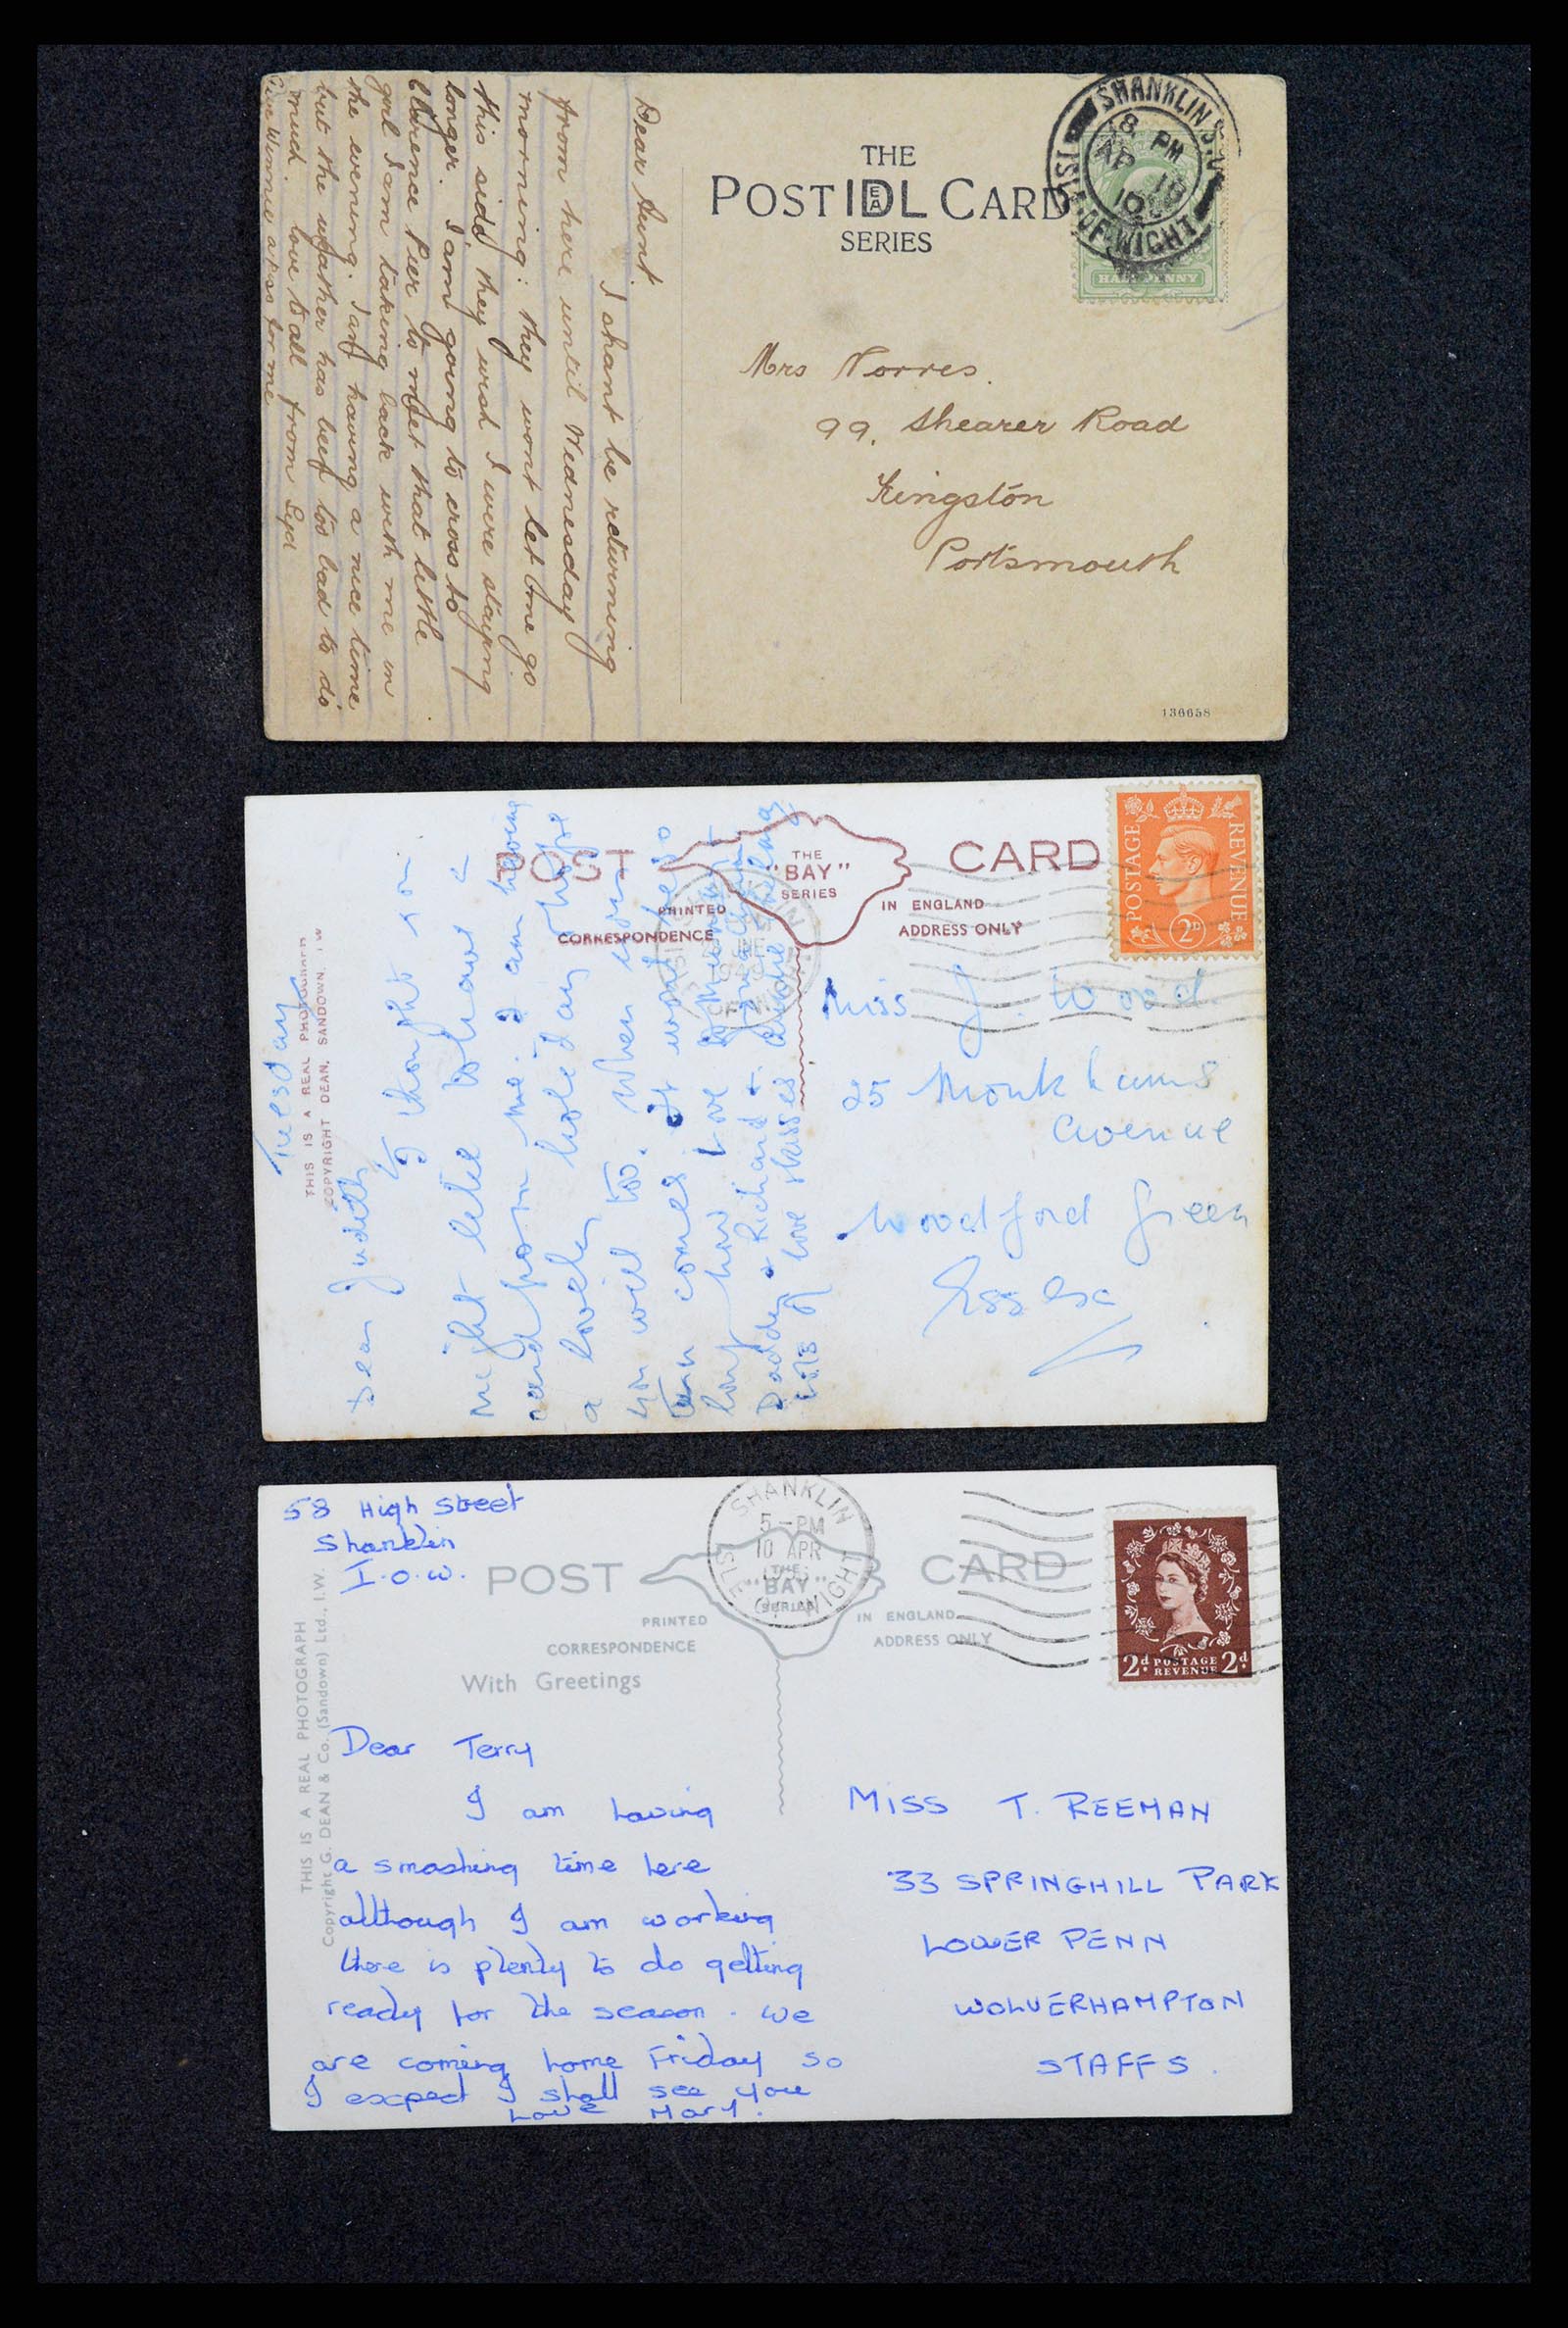 Dear Aunt.
I shant be returning
from here until Wednesday
morning: they wont let me go
this side they wish I were staying
longer. I'am going to cross to
Clarence Pier to meet that little
girl I am taking back with me in
the evening. I am having a nice time
but the weather has been too bad to do
much. love to all from Syd
Give Winnie a kiss for me
THE
POST IDEAL CARD
SERIES
SHANKLIN S.O.
8 PM
AP 18
10
ISLE OF WIGHT
HALFPENNY
Mrs Norres.
99. Shearer Road
Kingston
Portsmouth
136658
POST CARD
THE
"BAY"
SERIES
PRINTED IN ENGLAND
CORRESPONDENCE ADDRESS ONLY
POSTAGE REVENUE
2D
THIS IS A REAL PHOTOGRAPH
COPYRIGHT DEAN, SANDOWN, I W
Tuesday
Dear Judith
I thought you
might like to have a
card from me. I am having
a lovely holiday hope
you will too. When your
turn comes. It wont be so
long now Love to Mummy +
Daddy + Richard +
lots of love kisses Auntie
Miss J. Wood.
25 Monkhams
Avenue
Woodford Green
Essex
58 High Street
Shanklin
I.O.W.
POST CARD
THE
"BAY"
SERIES
PRINTED IN ENGLAND
CORRESPONDENCE ADDRESS ONLY
With Greetings
SHANKLIN
5-PM
10 APR
ISLE OF WIGHT
2d POSTAGE REVENUE 2d
THIS IS A REAL PHOTOGRAPH
Copyright G. DEAN & Co., (Sandown) Ltd., I.W.
Dear Terry
I am having
a smashing time here
although I am working
there is plenty to do getting
ready for the season. We
are coming home Friday so
I expect I shall see you
Love Mary.
MISS T. REEMAN
33 SPRINGHILL PARK
LOWER PENN
WOLVERHAMPTON
STAFFS.